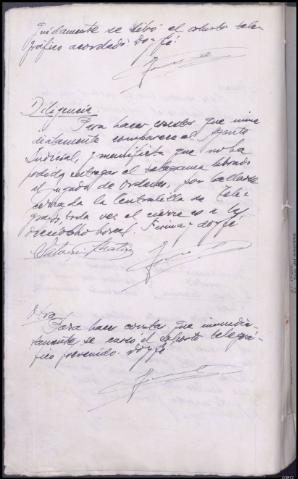 quidamente se libró el exhorto tele-
gráfico acordado doy fé
Diligencia
Para hacer constar que inme
diatamente comparece el Agente
Judicial, y manifiesta que no ha
podido entregar el telegrama librado
al Juzgado de Ordenes, por hallarse
cerrada la Centralilla de Telé-
grafos toda vez el cierre es a las
dieciocho horas. Firma doy fé
Otra
Para hacer constar que inmedia-
tamente se cursó el exhorto telegrá-
fico prevenido. doy fé